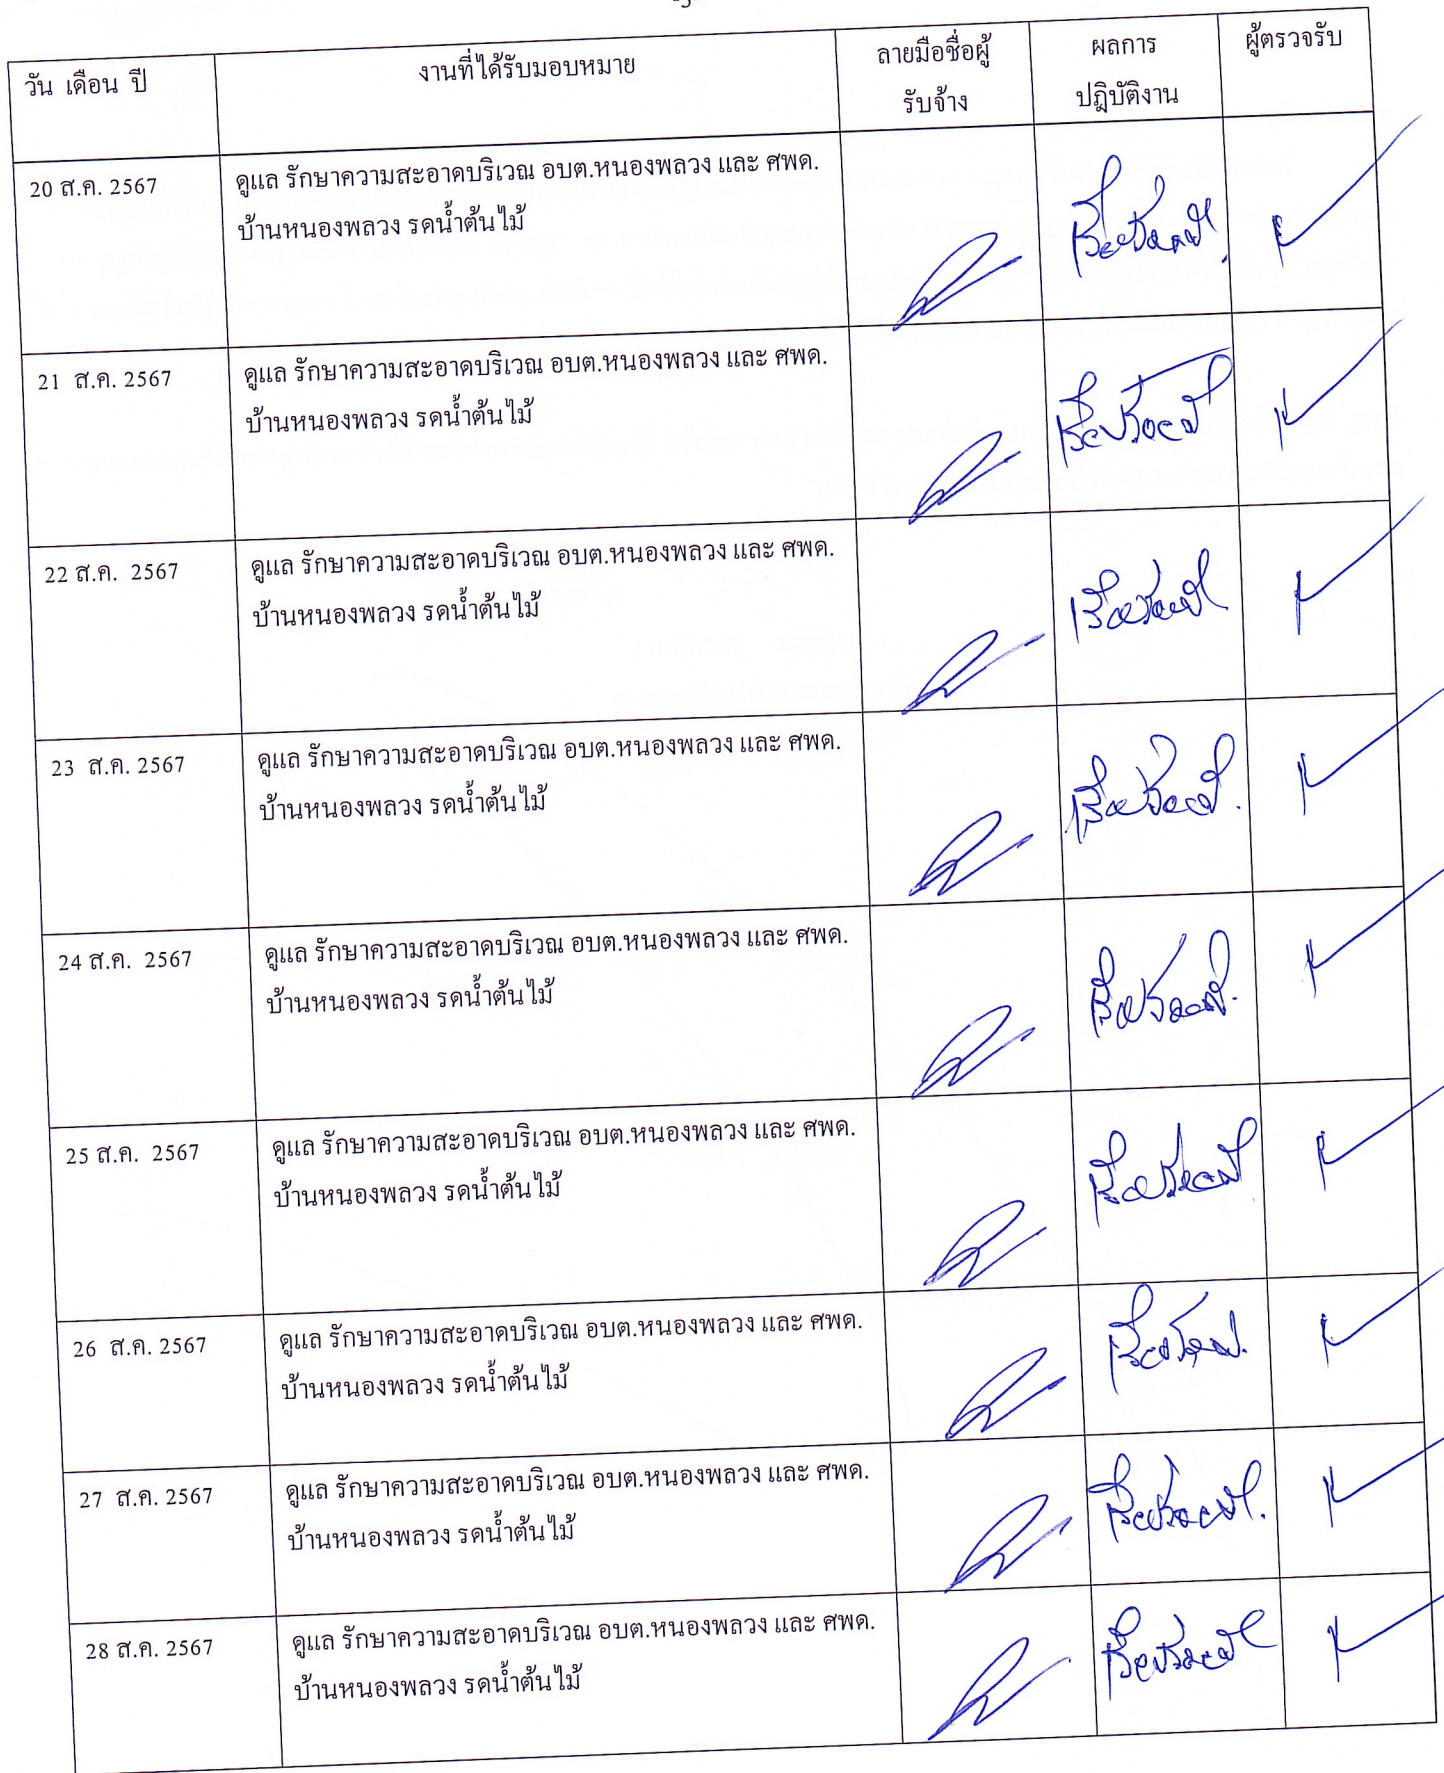 -3-
วัน เดือน ปี
งานที่ได้รับมอบหมาย
ลายมือชื่อผู้
รับจ้าง
ผลการ
ปฎิบัติงาน
ผู้ตรวจรับ
20 ส.ค. 2567
ดูแล รักษาความสะอาดบริเวณ อบต.หนองพลวง และ ศพด.
บ้านหนองพลวง รดน้ำต้นไม้
เรียบร้อยดี
21 ส.ค. 2567
ดูแล รักษาความสะอาดบริเวณ อบต.หนองพลวง และ ศพด.
บ้านหนองพลวง รดน้ำต้นไม้
เรียบร้อยดี
22 ส.ค. 2567
ดูแล รักษาความสะอาดบริเวณ อบต.หนองพลวง และ ศพด.
บ้านหนองพลวง รดน้ำต้นไม้
เรียบร้อยดี
23 ส.ค. 2567
ดูแล รักษาความสะอาดบริเวณ อบต.หนองพลวง และ ศพด.
บ้านหนองพลวง รดน้ำต้นไม้
เรียบร้อยดี
24 ส.ค. 2567
ดูแล รักษาความสะอาดบริเวณ อบต.หนองพลวง และ ศพด.
บ้านหนองพลวง รดน้ำต้นไม้
เรียบร้อยดี
25 ส.ค. 2567
ดูแล รักษาความสะอาดบริเวณ อบต.หนองพลวง และ ศพด.
บ้านหนองพลวง รดน้ำต้นไม้
เรียบร้อยดี
26 ส.ค. 2567
ดูแล รักษาความสะอาดบริเวณ อบต.หนองพลวง และ ศพด.
บ้านหนองพลวง รดน้ำต้นไม้
เรียบร้อยดี
27 ส.ค. 2567
ดูแล รักษาความสะอาดบริเวณ อบต.หนองพลวง และ ศพด.
บ้านหนองพลวง รดน้ำต้นไม้
เรียบร้อยดี
28 ส.ค. 2567
ดูแล รักษาความสะอาดบริเวณ อบต.หนองพลวง และ ศพด.
บ้านหนองพลวง รดน้ำต้นไม้
เรียบร้อยดี